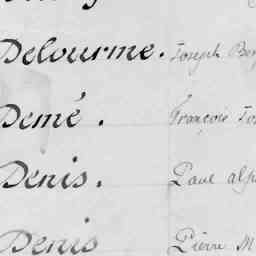 Delourme. Joseph
Demé. François
Denis. Paul
Denis Pierre M